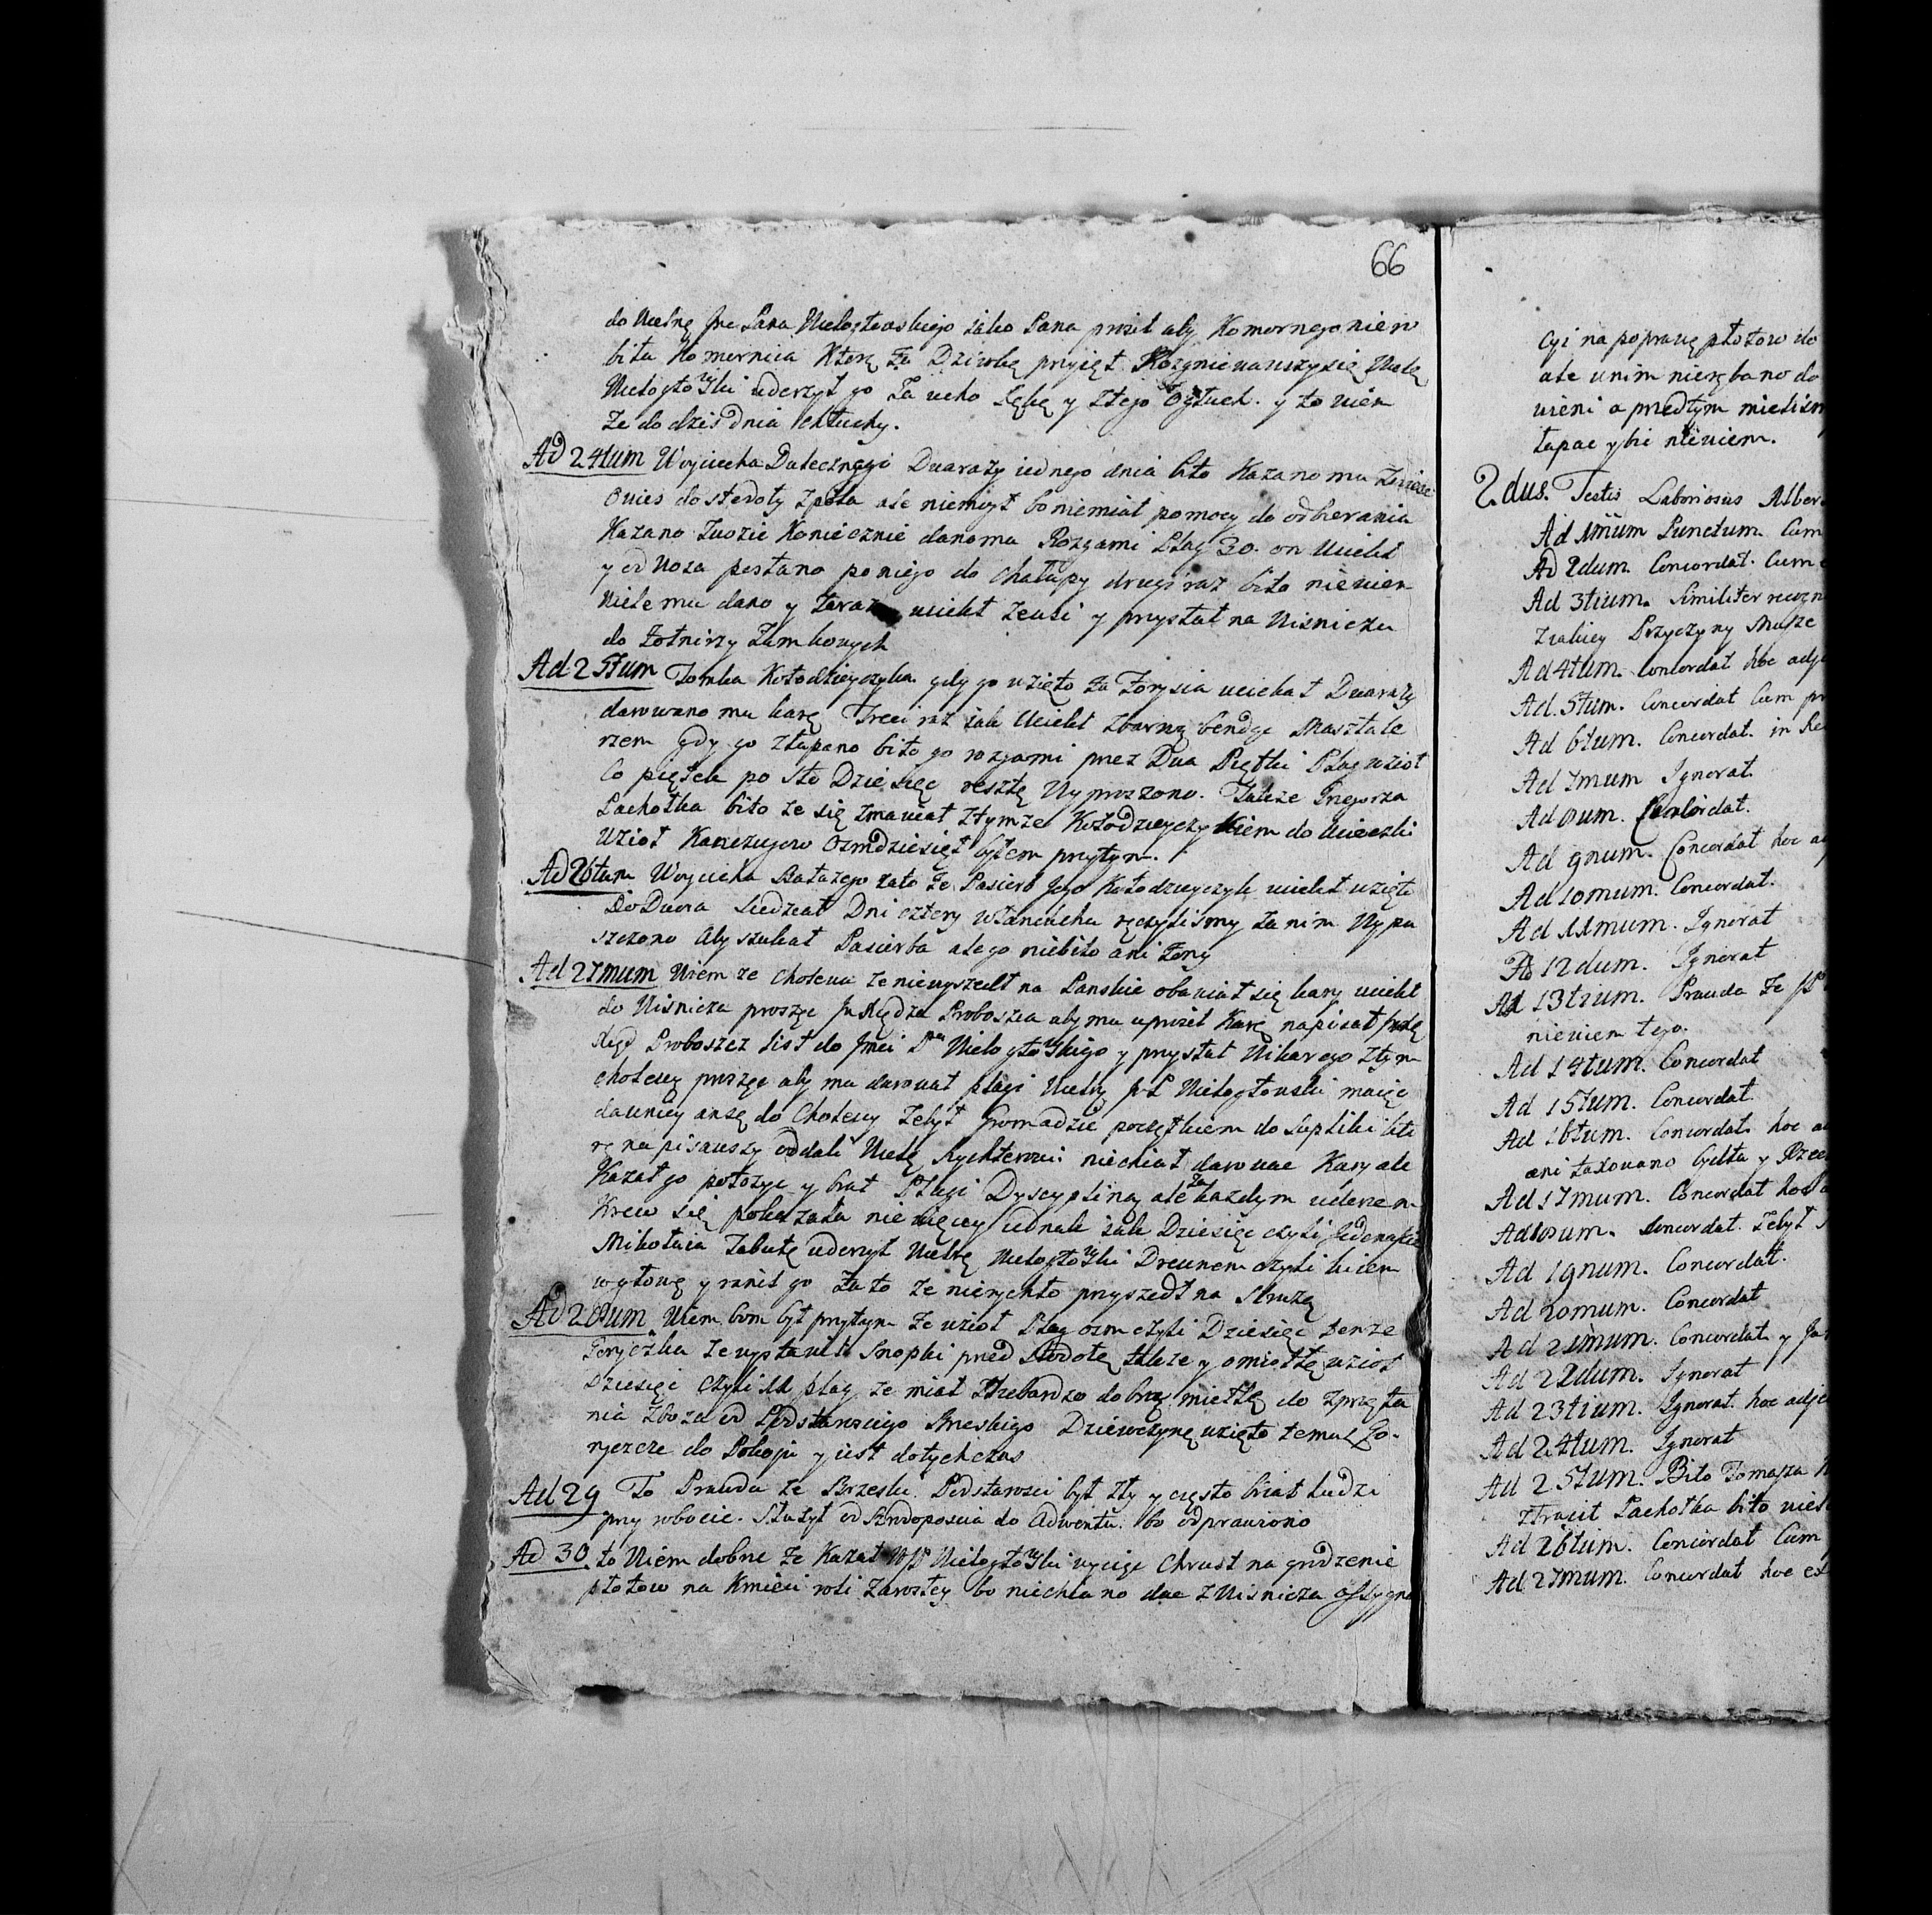 66
do Wielnę Jmc Pana Wielogłowskiego jako Pana prosił aby Komornego nie
biła Komornica Którę za Dziwkę przyjęt Rozgniewawszy się Wielę
Wielogłowski uderzył go za ucho Ręką y ztego Ogłuch. y to wiem
Ze do dziś dnia Głuchy.
Ad 24tum Woyciecha Dwarazy iednego dnia bito Kazano mu
Owies do stodoły z pola ale niemógł bo niemiał pomocy do odbierania
Kazano Zwozić Koniecznie dano mu Rozgami Plag 30. on Uciekł
y od Woza posłano po niego do Chałupy drugi raz bito niewiem
Wiele mu dano y Zaraz uciekł ze wsi y przystał na Wisniczu
do Zołnirzy Zamkowych
Ad 25tum Tomka Kołodzieyczyka gdy go wzięto za Forysia uciekał Dwarazy
darowano mu karę Trzeci raz jak Uciekł z będąc Masztale
rzem gdy go złapano bito go rozgami przez Dwa Piątki Plag wzioł
Co piątek po Sto Dziesięć resztę Wyproszono. Także Grzegorza
Pachołka bito ze się zmawiał z tymze Kołodzieyczykiem do Ucieczki
Wzioł Kanczugow Osmdziesiąt byłem przytym.
Ad 26tum Woyciecha zato ze Pasierb Jego Kołodzieyczyk uciekł wzięto
Do Dwora Siedział Dni cztery w łancuchu ręczyliśmy za nim Wypu
szczono Aby szukał Pasierba ale go niebito ani Zony
Ad 27mum Wiem ze Cholewa ze niewyszedł na Panskie obawiał się kary uciekł
do Wisnicza prosząc Jm Xiędza Proboszcza aby mu uprosił Karę napisał
Xiądz Proboszcz list do Jmci Pna Wielogłowskigo y przysłał Wikarego z tym
Cholewą prosząc aby mu darował plagi Wielny Wielogłowski maiąc
dawniey ansę do Cholewy Zebył Gromadzie początkiem do Supliki któ
rę napisawszy oddali Wielę Rychterowi niechciał darować Kary ale
Kazał go położyć y brał Plagi Dyscypliną ale za każdym uderzen
Krew się pokazała nie więcey iednak jak Dziesięć czyli Jedenaście
Mikołaia Zabutę uderzył Wielnę Wielogłowski Drewnem czyli kiiem
w głowę y ranił go za to ze nierychło przyszedł na Strużę
Ad 28vum Wiem bom był przytym ze wzioł Plag osm czyli Dziesięć tenże
ze wystawił Snopki przed Stodołę także y o miotłę wzioł
Dziesięć czyli 11 plag ze miał dobrą miotłę do zprząta
nia zboza od Podstarosciego Brzeskigo Dziewczynę wzięto temuz Go-
ryczce do Pokoju y iest dotychczas
Ad 29 To Prawda ze Brzeski Podstarosci był zły y często bijał Ludzi
przy robocie. Służył od Srodoposcia do Adwentu. bo odprawiono
Ad 30 to Wiem dobrze ze Kazał WJP Wielogłowski wyciąć Chrust na grodzenie
płotow na Kmieci roli zarosłey bo niechciano dać z Wisnicza assygna
cyi na poprawę płotow do
ale unim nierąbano do
wieni a przedtym mieliśm
łapać y bić niewiem.
2dus. Testis Laboriosus Alber
Ad 1mum Punctum. Cum
Ad 2dum. Concordat. Cum
Ad 3tium. Similiter
Przyczyny
Ad 4tum. Concordat hoc adj
Ad 5tum. Concordat Cum pr
Ad 6tum. Concordat. in
Ad 7mum Ignorat.
Ad 8vum. Concordat.
Ad 9num. Concordat hoc
Ad 10mum. Concordat.
Ad 11mum. Ignorat
Ad 12dum. Ignorat
Ad 13tium. Prawda ze
niewiem tego.
Ad 14tum. Concordat
Ad 15tum. Concordat
Ad 16tum. Concordat. hoc
ani taxowano bydła y
Ad 17mum. Concordat hoc
Ad 18vum. Concordat. Zebył
Ad 19num. Concordat.
Ad 20mum. Concordat
Ad 21mum. Concordat y
Ad 22dum. Ignorat
Ad 23tium. Ignorat. hoc adje
Ad 24tum. Ignorat
Ad 25tum. Bito Tomasza
Pachołka bito
Ad 26tum. Concordat Cum
Ad 27mum. Concordat hoc